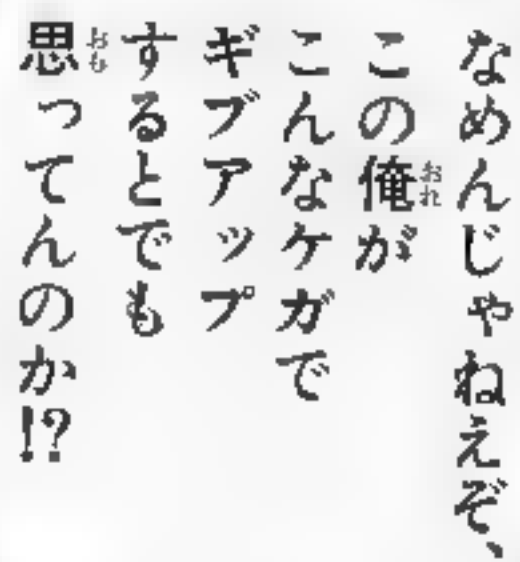 なめんじゃねえぞ、
この俺が
こんなケガで
ギブアップ
するとでも
思ってんのか!?